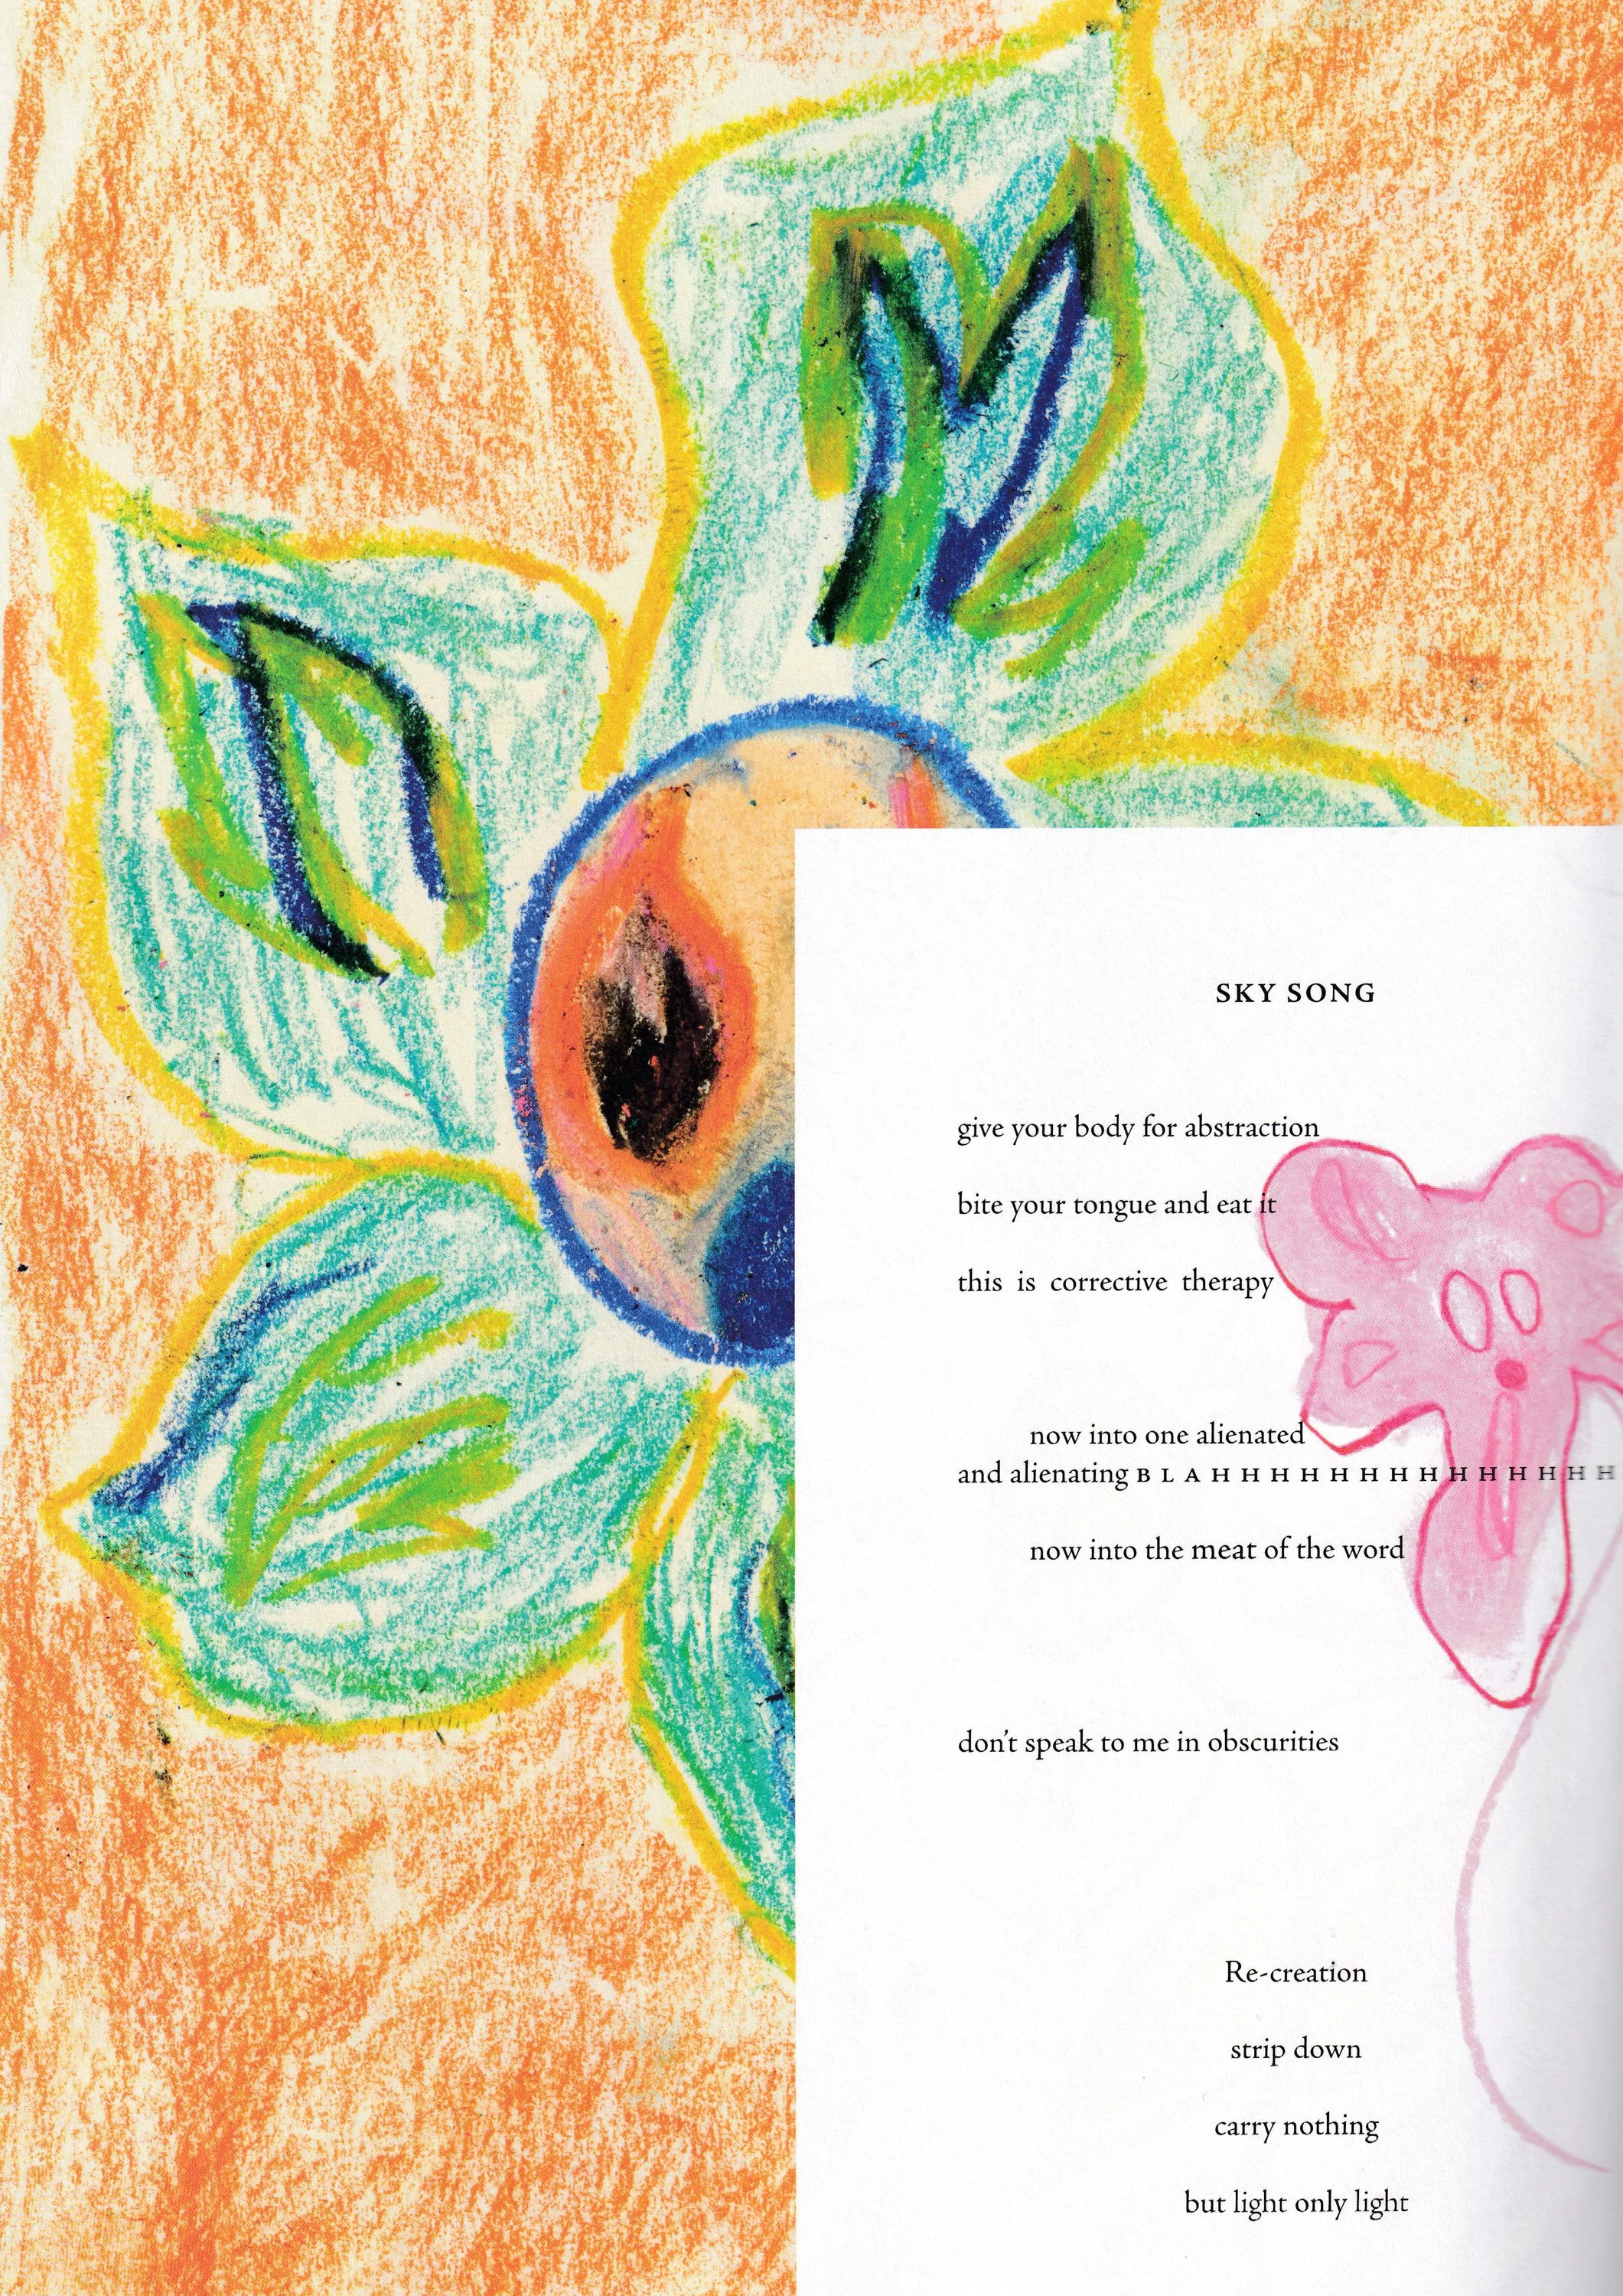 SKY SONG
give your body for abstraction
bite your tongue and eat it
this is corrective therapy
now into one alienated
and alienating B L A H H H H H H H H H H H H H H
now into the meat of the word
don't speak to me in obscurities
Re-creation
strip down
carry nothing
but light only light